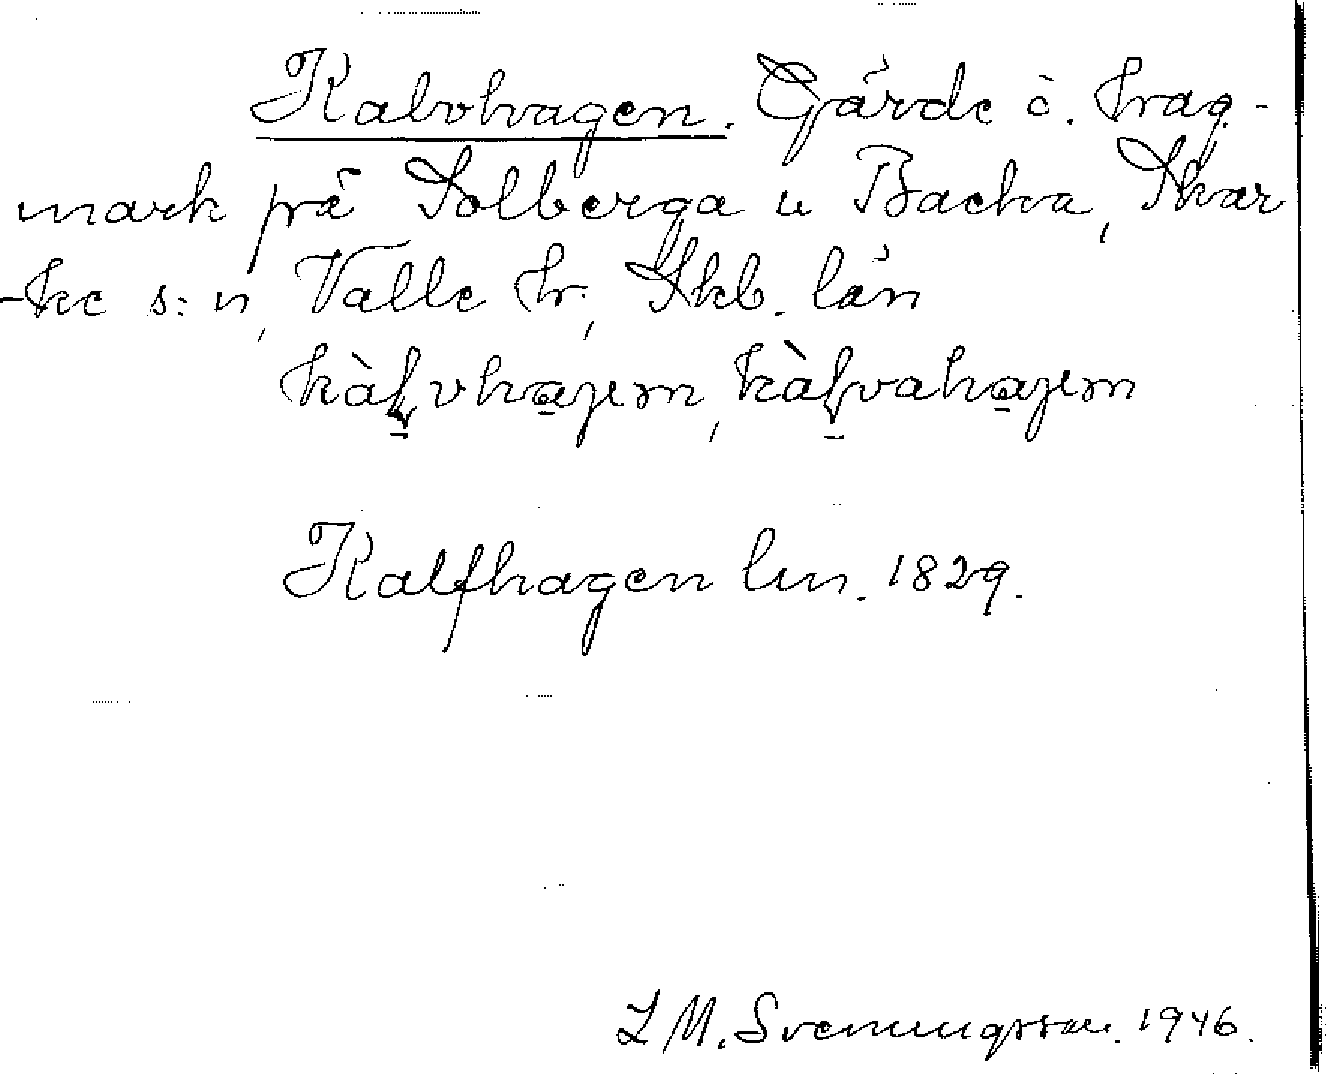 Kalvhagen. Gärde o. hag-
mark på Solberga u Backa, Skar
-ke s:n, Valle hr, Skb. län
kàl̠vha̠jem, kàl̠vaha̠jem
Kalfhagen lm. 1829.
L M. Svenungsson. 1946.